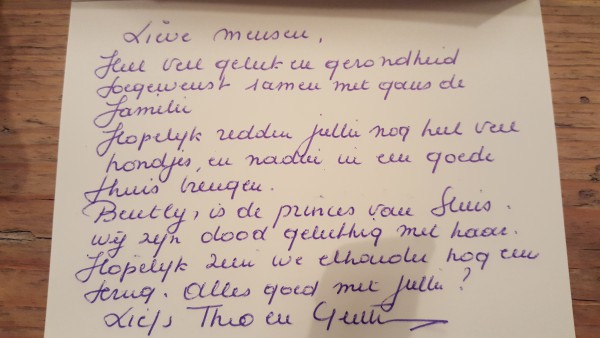 Lieve mensen,
Heel veel geluk en gezondheid
toegewenst samen met gans de
familie
Hopelijk redden jullie nog heel veel
hondjes, en nadien in een goede
thuis brengen.
Bently, is de princes van Sluis.
wij zijn dood gelukkig met haar.
Hopelijk zien we elkander nog een
terug. Alles goed met jullie?
Liefs Theo en